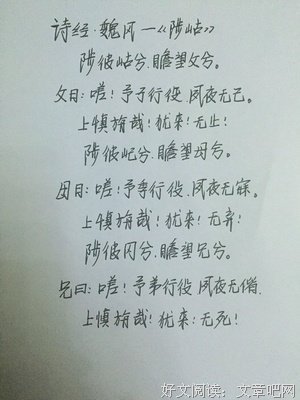 诗经·魏风—《陟岵》
陟彼岵兮.瞻望父兮。
父曰:嗟!予子行役.夙夜无已。
上慎旃哉!犹来!无止!
陟彼屺兮.瞻望母兮。
母曰:嗟!予季行役.夙夜无寐。
上慎旃哉!犹来!无弃!
陟彼冈兮.瞻望兄兮。
兄曰:嗟!予弟行役.夙夜无偕.
上慎旃哉!犹来:无死!
好文阅读:文章吧网